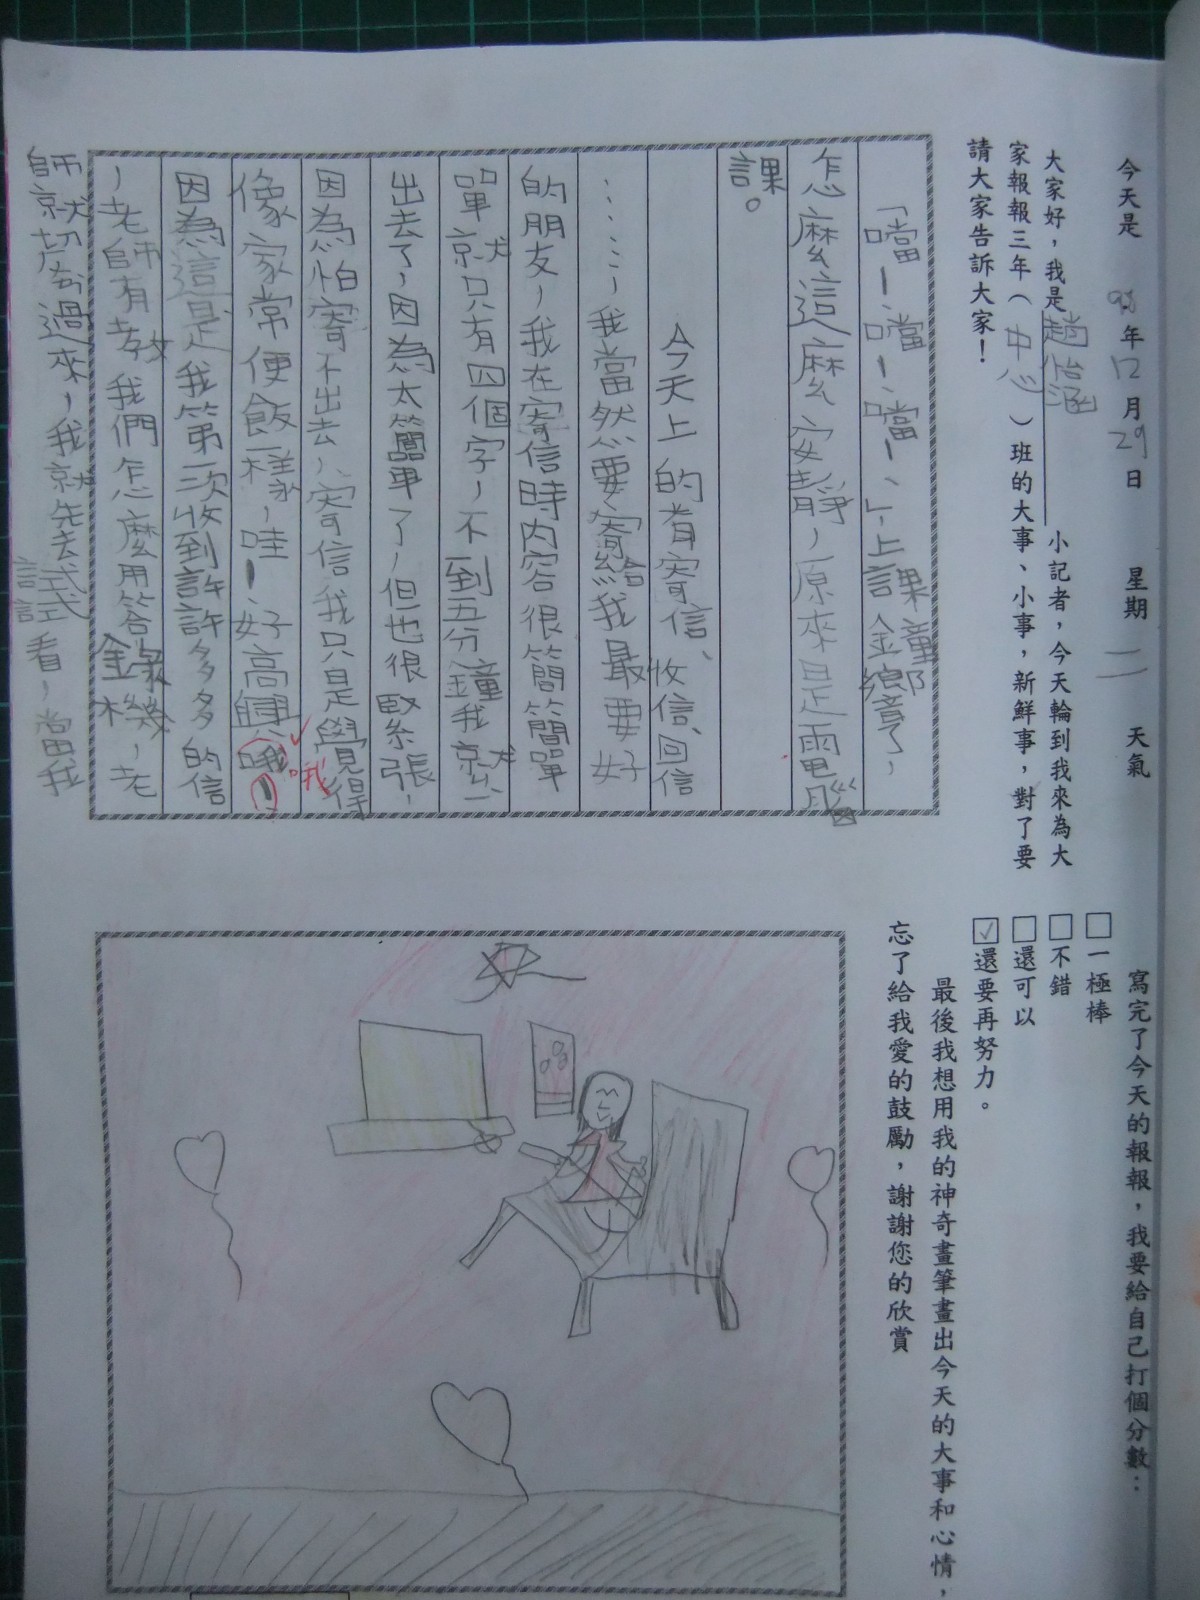 今天是 98年12月29日 星期二 天氣
大家好，我是趙怡涵小記者，今天輪到我來為大
家報報三年（中心）班的大事、小事，新鮮事，對了要
請大家告訴大家！
「噹ー噹ー噹ー、」上課鐘響了，
怎麼這麼安靜，原來是電腦
課。
今天上的有寄信、收信、回信
……，我當然要寄給我最要好
的朋友，我在寄信時內容很簡簡單
單就只有四個字，不到五分鐘我就
出去了，因為太簡單了，但也很緊張，
因為怕寄不出去，寄信我只是覺得
像家常便飯一樣，哇ー、好高興哦！
哦。
因為這是我第一次收到許許多多的信
，老師有教我們怎麼用答錄機，老
師就切換過來，我就先去試
試看，當我
寫完了今天的報報，我要給自己打個分數：
□一極棒
□不錯
□還可以
☑還要再努力。
最後我想用我的神奇畫筆畫出今天的大事和心情，
忘了給我愛的鼓勵，謝謝您的欣賞